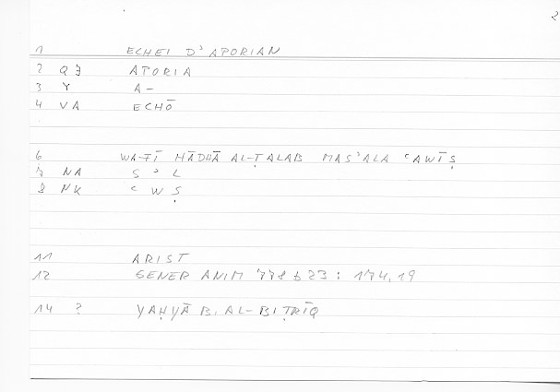 2
1 ECHEI D'APORIAN
2 QJ APORIA
3 Y A-
4 VA ECHŌ
6 WA-FĪ HĀḎĀ AL-ṬALAB MAS'ALA ʿAWĪṢ
7 NA S ʾ L
8 NK ʿ W Ṣ
11 ARIST
12 GENER ANIM 778 b 23 : 174,19
14 ? YAḤYĀ B. AL-BIṬRĪQ